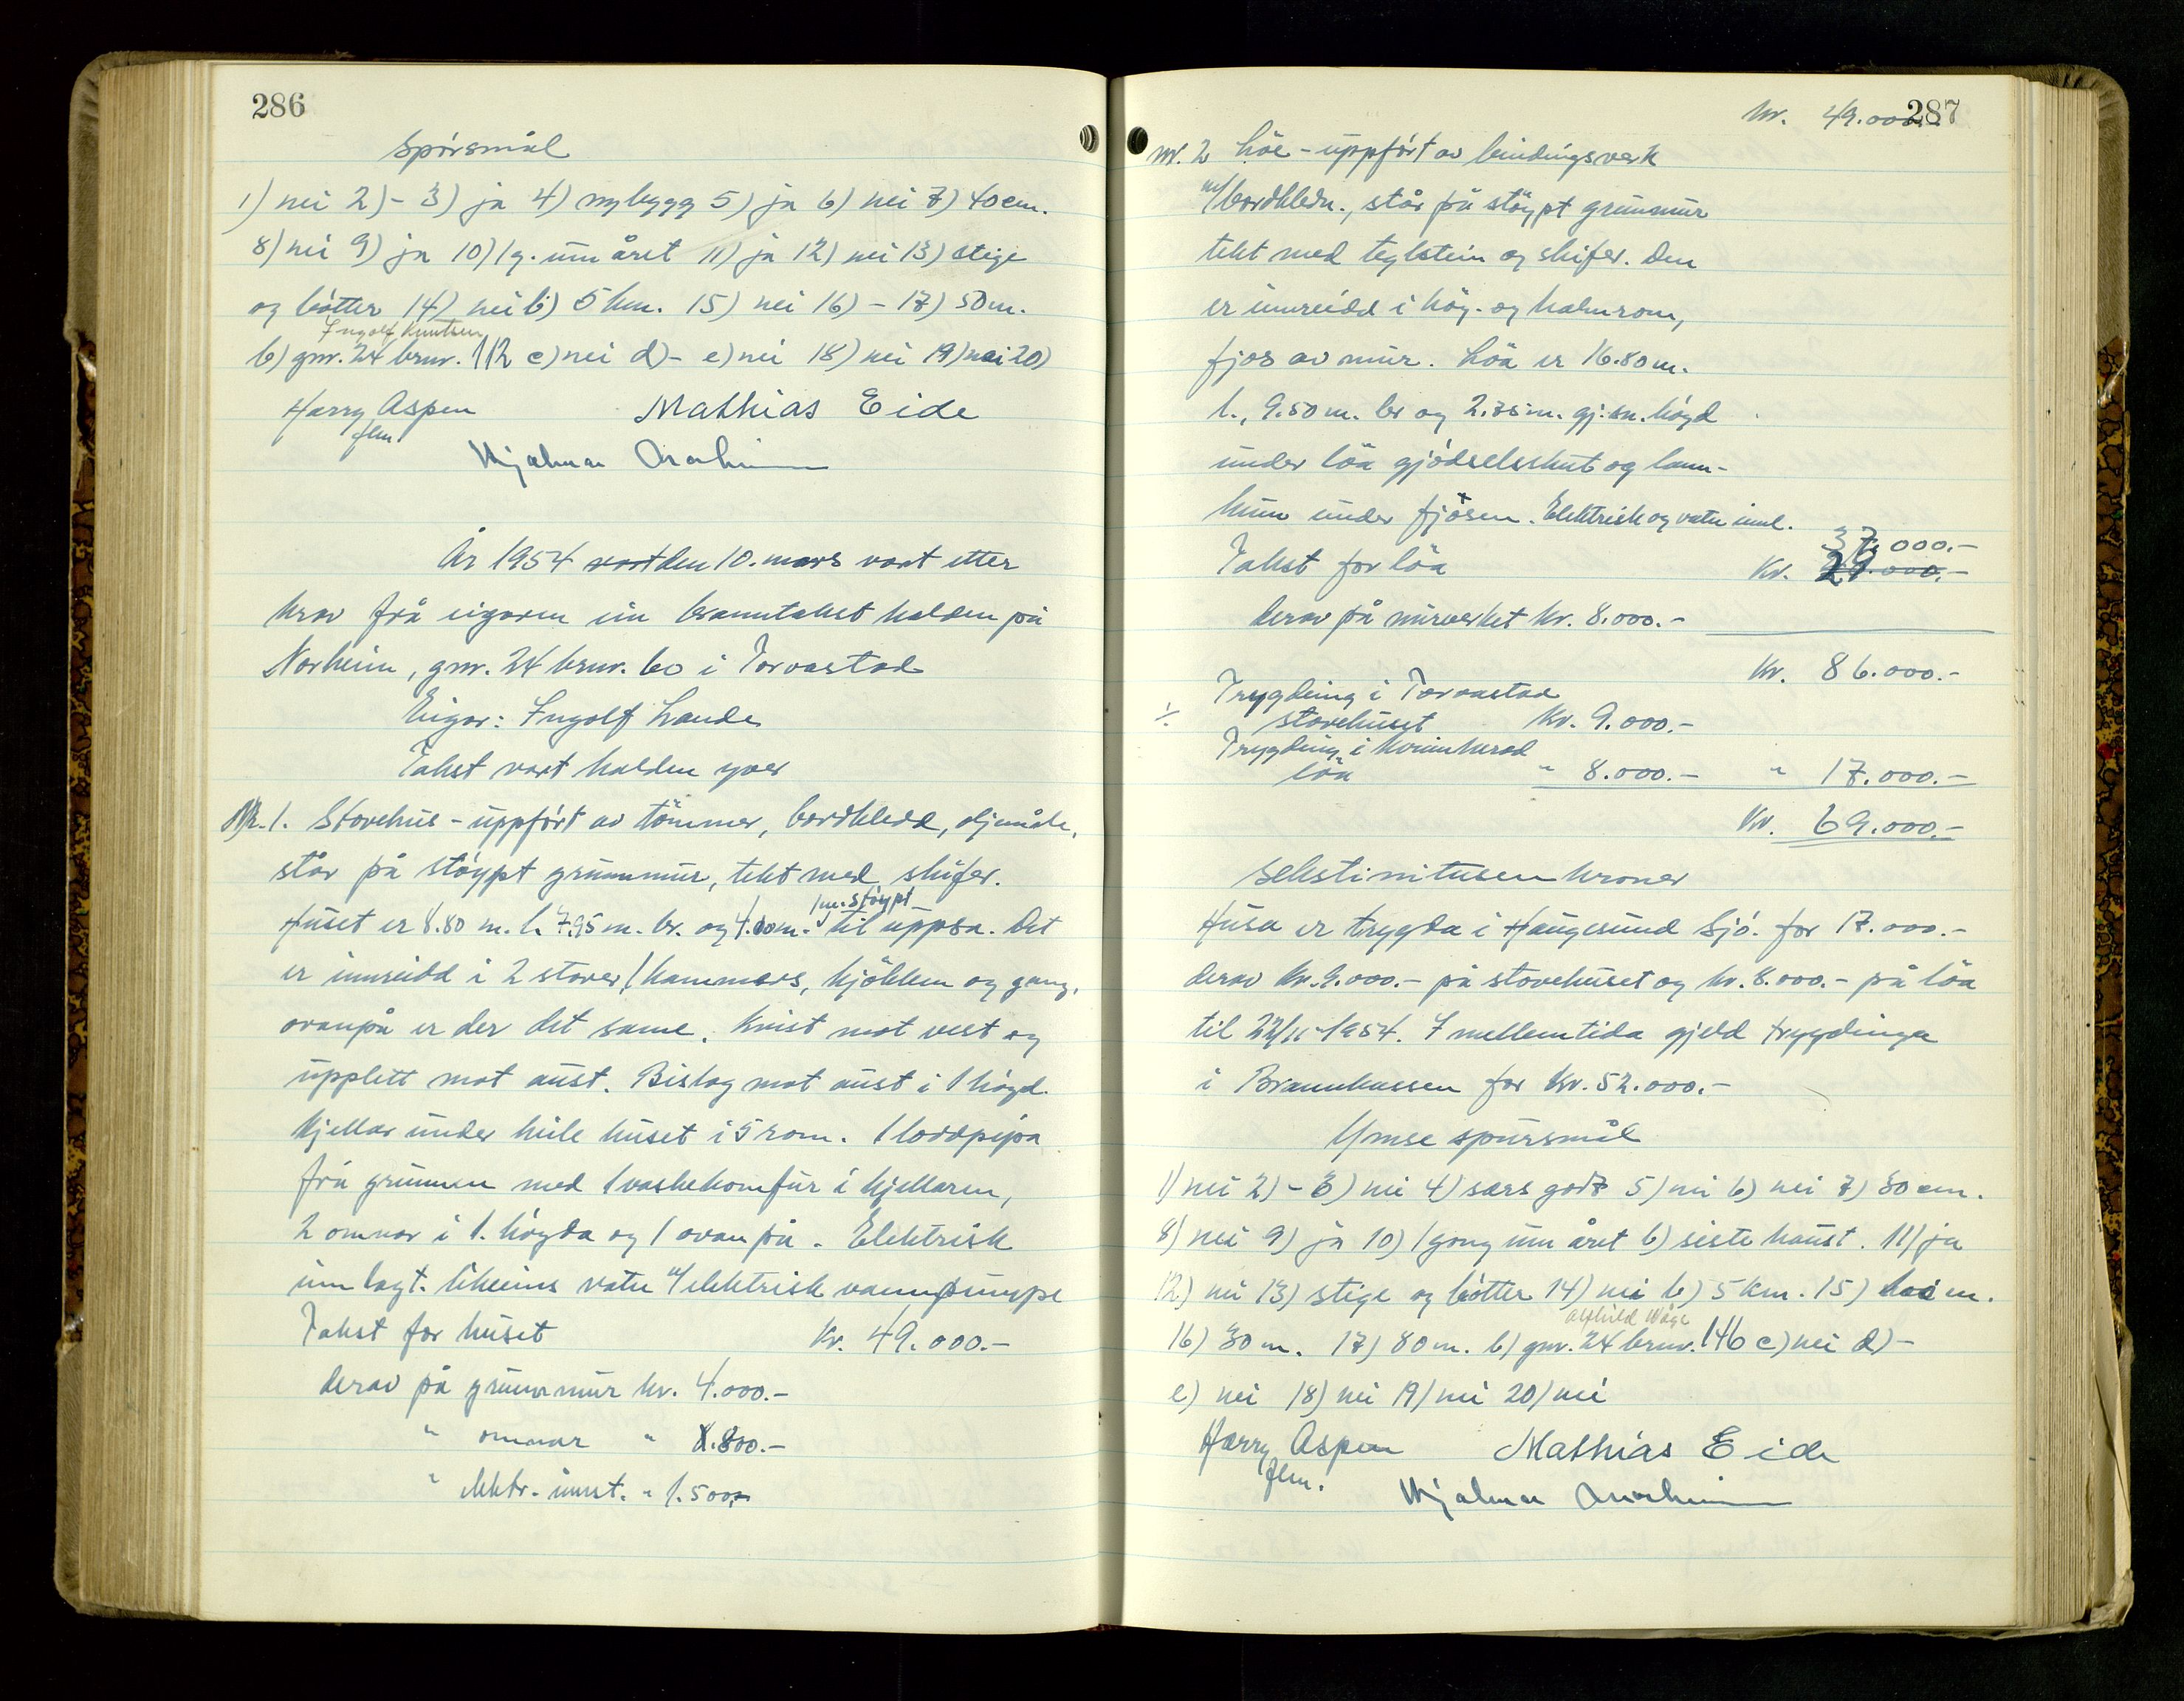 286
Spørsmål
1) nei 2) - 3) ja 4) nybygg 5) ja 6) nei 7) 40 cm.
8) nei 9) ja 10) 1 g. um året 11) ja 12) nei 13) stige
og bøtter 14) nei b) 5 km. 15) nei 16) - 17) 50 m.
Ingolf Knutsen
b) gnr. 24 brnr. 112 c) nei d) - e) nei 18) nei 19) nei 20)
Harry Aspen Mathias Eide
flm.
Hjalmar
År 1954 vart den 10. mars vart etter
krav frå eigaren ein branntakst halden på
Norheim, gnr. 24 brnr. 60 i Torvastad
Eigar: Ingolf Lande
Takst vart halden yver
Nr. 1. Stovehus - uppført av tömmer, bordkledd, oljemåla,
står på støypt grunnmur, tekt med skifer.
1 m. støypt
Huset er 8.80 m. l. 7.95 m. br. og 4.00 m. til uppsa. Det
er innreidd i 2 stover, 1 kammers, kjökken og gang,
ovanpå er der det same. Kvist mot vest og
upplett mot aust. Bislag mot aust i 1 høgd.
Kjellar under heile huset i 5 rom. 1 loddpipa
frå grunnen med 1 vaskekomfur i kjellaren,
2 omnar i 1. høgda og 1 ovanpå. Elektrisk
innlagt. Likeeins vatn m/elektrisk vannpumpe
Takst for huset Kr. 49.000.-
derav på grunnmur kr. 4.000.-
" omnar " 1.800.-
" elektr. innst. " 1.500.-
287
Kr. 49.000.-
nr. 2 Löe - uppført av bindingsverk
m/bordkledn., står på støypt grunnmur
tekt med teglstein og skifer. Den
er innreidd i høy- og halmrom,
fjos av mur. Löa er 16.80 m.
l., 9.50 m. br og 2.75 m. gj.sn. høgd
under löa gjødselskut og land-
kum under fjösen. Elektrisk og vatn innl.
37.000.-
Takst for löa Kr. 29.000.-
derav på murverket kr. 8.000.-
Kr. 86.000.-
Trygding i Torvastad
÷ stovehuset Kr. 9.000.-
Trygding i Kvinnherad
löa " 8.000.- " 17.000.-
Kr. 69.000.-
sekstinitusen kroner
Husa er trygda i Haugesund Sjø. for 17.000.-
derav kr. 9.000.- på stovehuset og kr. 8.000.- på löa
til 22/11-1954. I mellemtida gjeld trygdinga
i Brannkassen for Kr. 52.000.-
Ymse spursmål
1) nei 2) - 3) nei 4) særs godt 5) nei 6) nei 7) 30 cm.
8) nei 9) ja 10) 1 gong um året b) siste haust. 11) ja
12) nei 13) stige og bøtter 14) nei b) 5 km. 15) m.
Alfhild Våge
16) 30 m. 17) 80 m. b) gnr. 24 brnr. 146 c) nei d) -
e) nei 18) nei 19) nei 20) nei
Harry Aspen Mathias Eide
flm.
Hjalmar